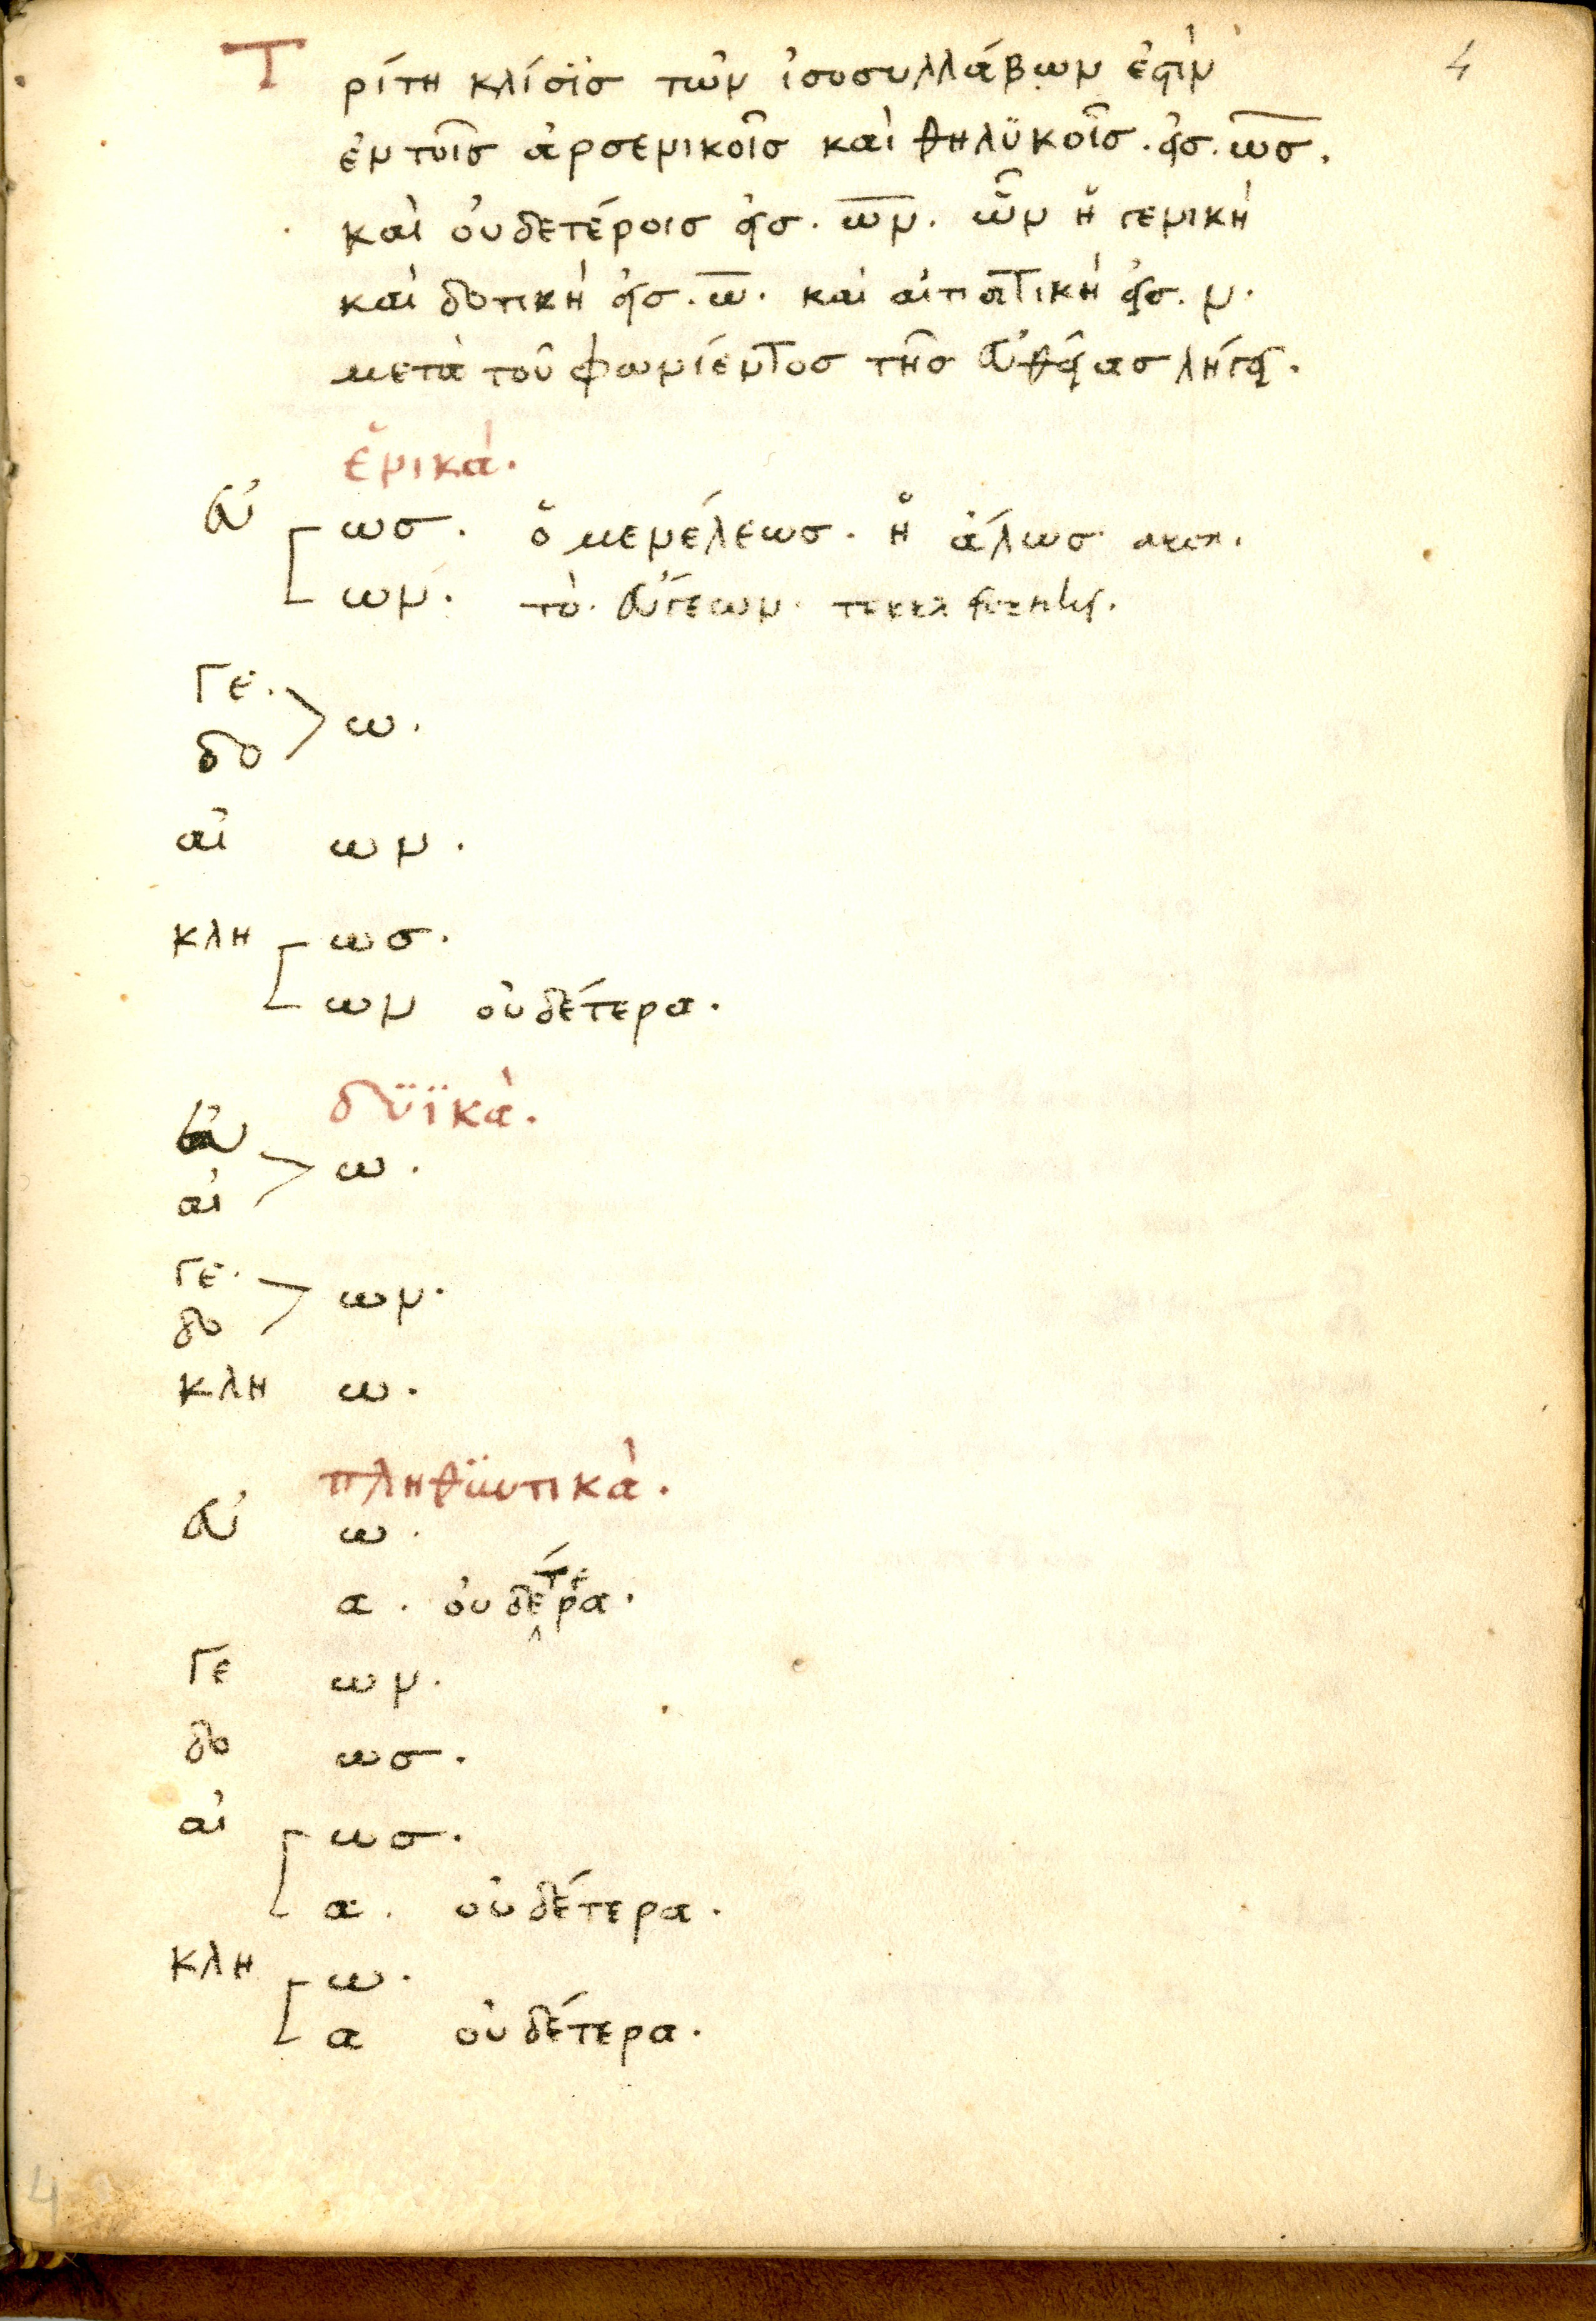 4
Τρίτη κλίσϊς τῶν ἰσοσυλλάβων ἐστὶν
ἐν τοῖς ἀρσενικοῖς καὶ θηλϋκοῖς. εἰς. ως.
καὶ οὐδετέροις εἰς. ων. ὧν ἡ γενικὴ
καὶ δοτικὴ εἰς. ω. καὶ αἰτιατικὴ εἰς. ν.
μετὰ τοῦ φωνήεντος τῆς εὐθείας λήγει.
ἑνικά.
εὐ ως. ὁ μενέλεως. ἡ ἅλως
ων. τὸ. εὔγεων. terra fertilis.
Γε.
δο ω.
αἰ ων.
κλη ως.
ων οὐδέτερα.
δϋϊκὰ.
εὐ
αἰ ω.
Γε.
δο ων.
κλη ω.
πληθϋντικὰ.
εὐ ω.
α. οὐδέτερα.
Γε ων.
δο ως.
αἰ ως.
α. οὐδέτερα.
κλη ω.
α οὐδέτερα.
4